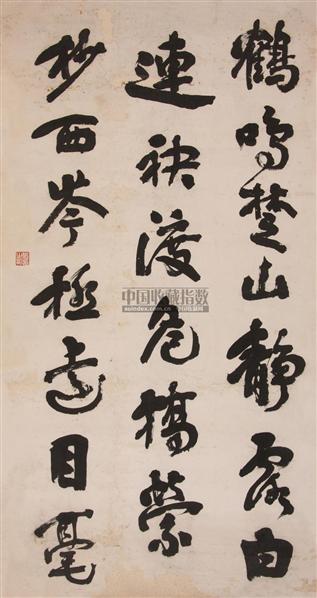 鶴鳴楚山靜露白
連袂渡危橋縈
杪西岑極遠目毫
中国收藏指数